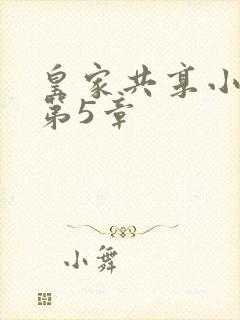 皇家共享小
第5章
小舞